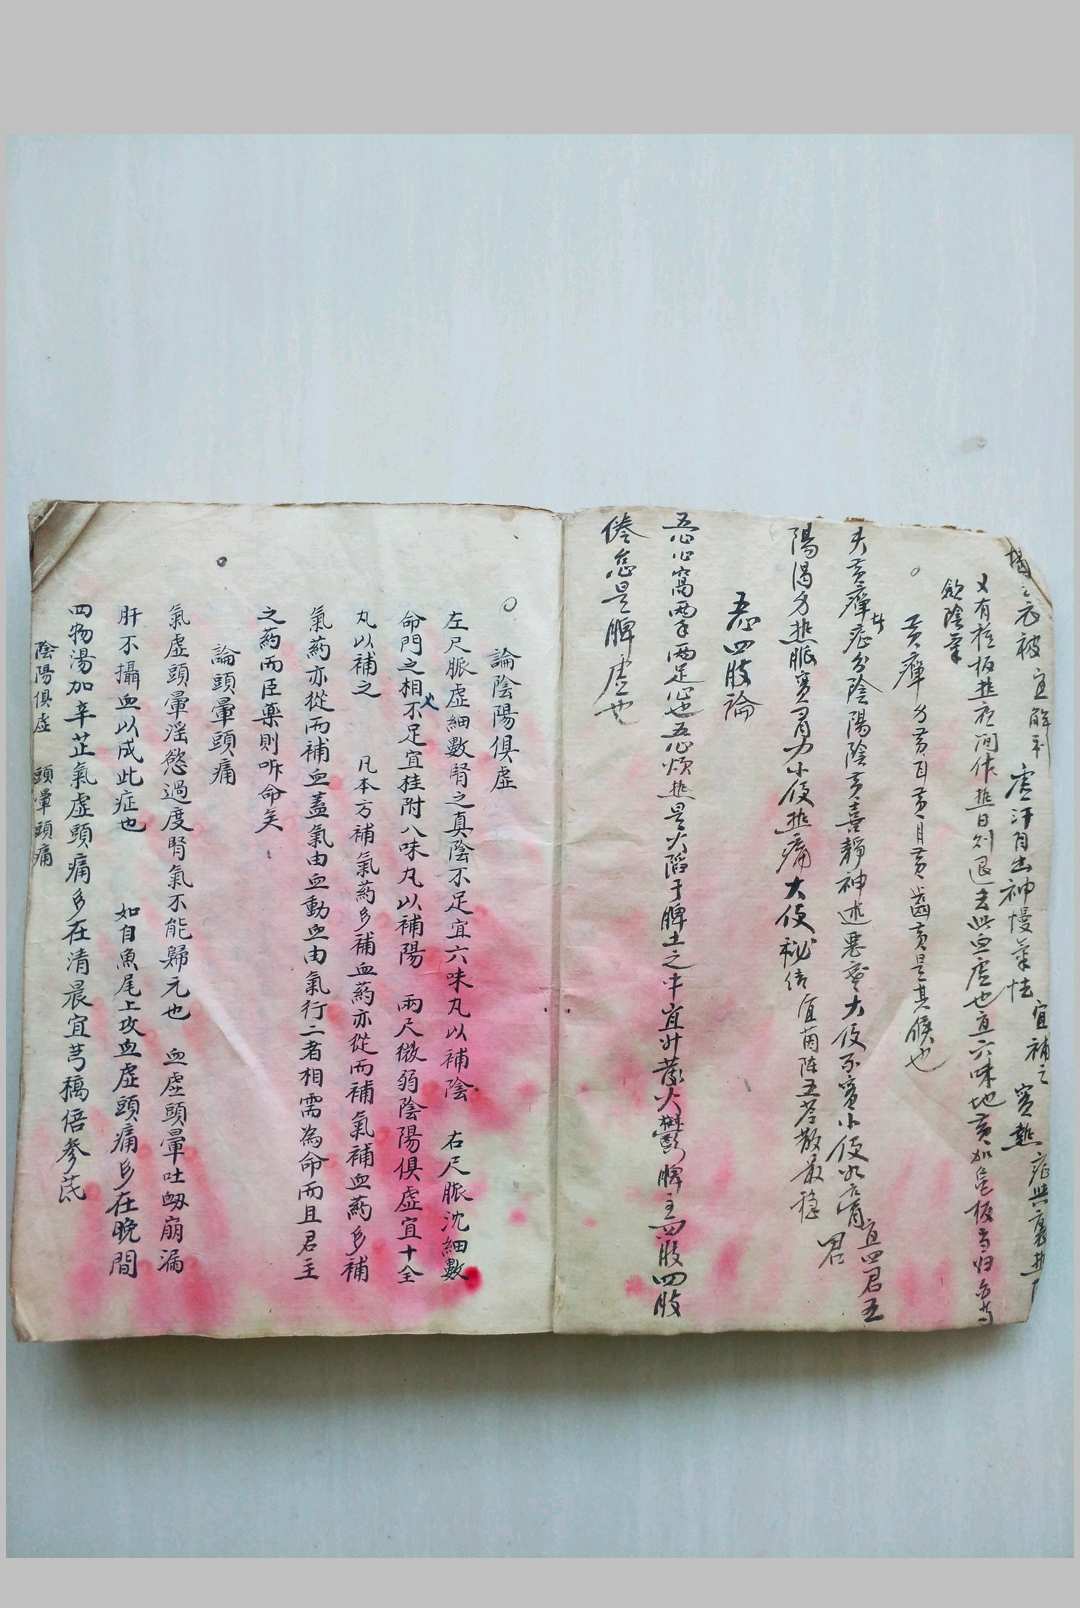 衣被 宜解利 虛汗自出神慢氣怯 宜補之 實熱症與裏熱
又有核板热夜間作热日則退去此血虛也宜六味地黃加龟板当归
飲陰藥
黃癉 身黃耳黃目黃齒黃是其候也
夫黃癉症分陰陽陰黃喜靜神迷惡寒大便不實小便如膏宜四君五
陽渴身热脈實有力小便热痛大便祕結宜茵陈五苓散最穩 君
五心四肢論
五心心窩兩手兩足心也五心烦热是火陷于脾土之中宜升發火鬱脾主四肢四肢
倦怠是脾虛也
論陰陽俱虛
左尺脈虛細數腎之真陰不足宜六味丸以補陰 右尺脈沈細數
命門之相火不足宜桂附八味丸以補陽 兩尺微弱陰陽俱虛宜十全
丸以補之 凡本方補氣葯多補血葯亦從而補氣補血葯多補
氣葯亦從而補血蓋氣由血動血由氣行二者相需為命而且君主
之葯而臣藥則听命矣
論頭暈頭痛
氣虛頭暈淫慾過度腎氣不能歸元也 血虛頭暈吐衂崩漏
肝不攝血以成此症也 如自魚尾上攻血虛頭痛多在晚間
四物湯加辛芷氣虛頭痛多在清晨宜芎藁倍參茋
陰陽俱虛 頭暈頭痛